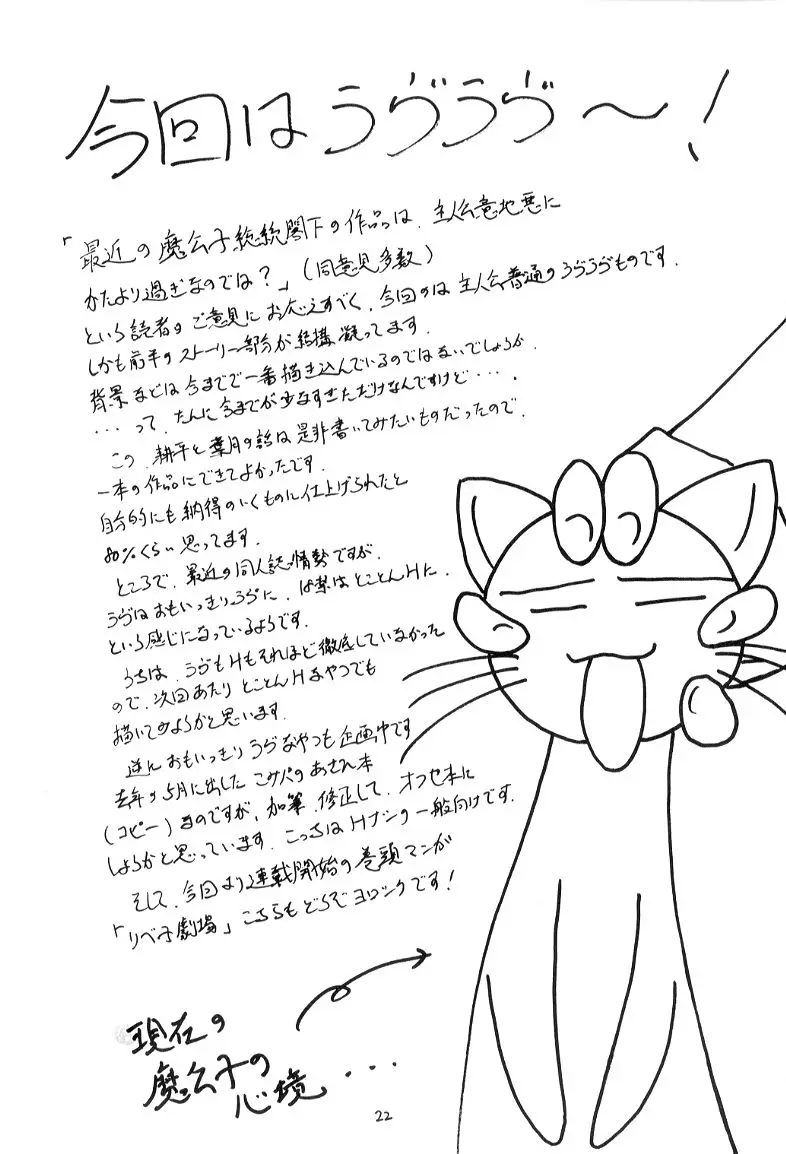 今回はうづうづ〜!
「最近の魔公子総統閣下の作品は、主人公意地悪に
かたより過ぎなのでは?」(同意見多数)
という読者のご意見にお応えすべく、今回のは主人公普通のうづうづものです。
しかも前半のストーリー部分が結構凝ってます。
背景などは今までで一番描き込んでいるのではないでしょうか。
・・・って、たんに今までが少なすぎただけなんですけど・・・。
この、耕平と葉月の話は是非書いてみたいものだったので、
一本の作品にできてよかったです。
自分的にも納得のいくものに仕上げられたと
80%くらい思ってます。
ところで、最近の同人誌情勢ですが、
うづはおもいっきりうづに、Hはとことんに、
という感じになっているようです。
うちは、うづもHもそれほど徹底していなかった
ので、次回あたりとことんHなやつでも
描いてみようかと思います。
逆におもいっきりうづなやつも企画中です
去年の5月に出したこみパのあさひ本
(コピー)なのですが、加筆、修正して、オフセ本に
しようかと思っています。こっちはHナシの一般向けです。
そして、今回より連載開始の巻頭マンガ
「リベ子劇場」こちらもどうぞヨロシクです!
現在の
魔公子の
心境・・・
22